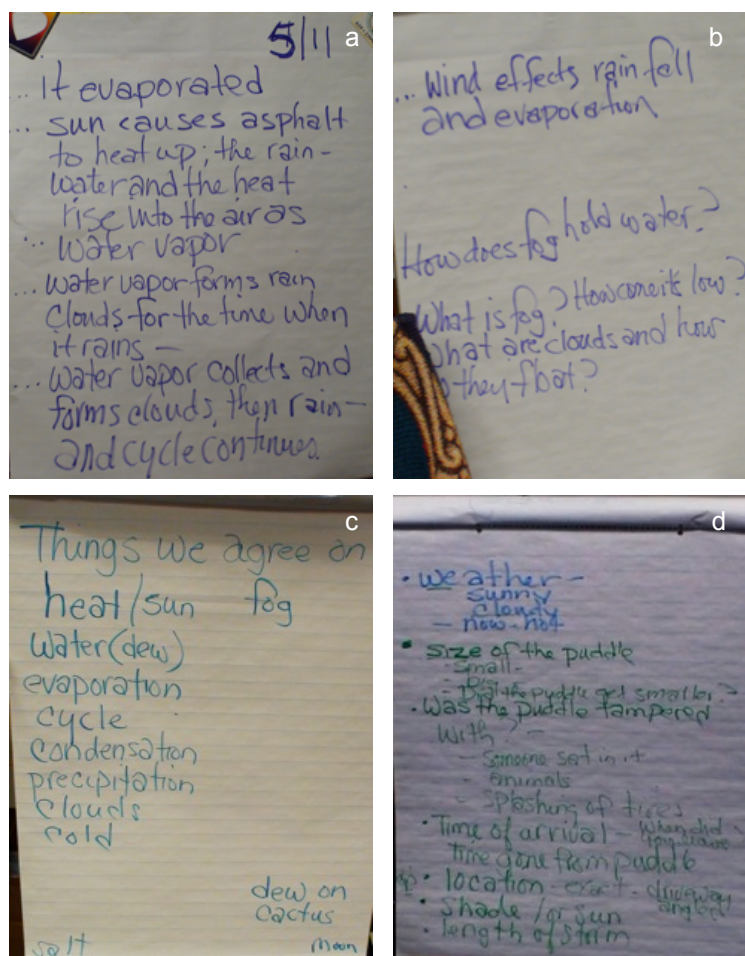 a
5/11
... It evaporated
... sun causes asphalt
to heat up; the rain-
water and the heat
rise into the air as
... water vapor
... water vapor forms rain
clouds for the time when
it rains —
... water vapor collects and
forms clouds, then rain—
and cycle continues.
b
... Wind effects rain fall
and evaporation
How does fog hold water?
What is fog? How come it's low?
hat are clouds and how
they float?
c
Things we agree on
heat/sun fog
Water (dew)
evaporation
cycle
condensation
precipitation
clouds
cold
dew on
cactus
salt
Moon
d
• weather -
sunny
cloudy
- now - hot
• size of the puddle
- small -
- Big -
- Did the puddle get smaller?
• Was the puddle tampered
with? -
- Someone sat in it
- animals
- splashing of tires
• Time of arrival - When did
leave
Time gone from puddle
• location - exact - driveway
angled
• shade /or sun
• length of storm